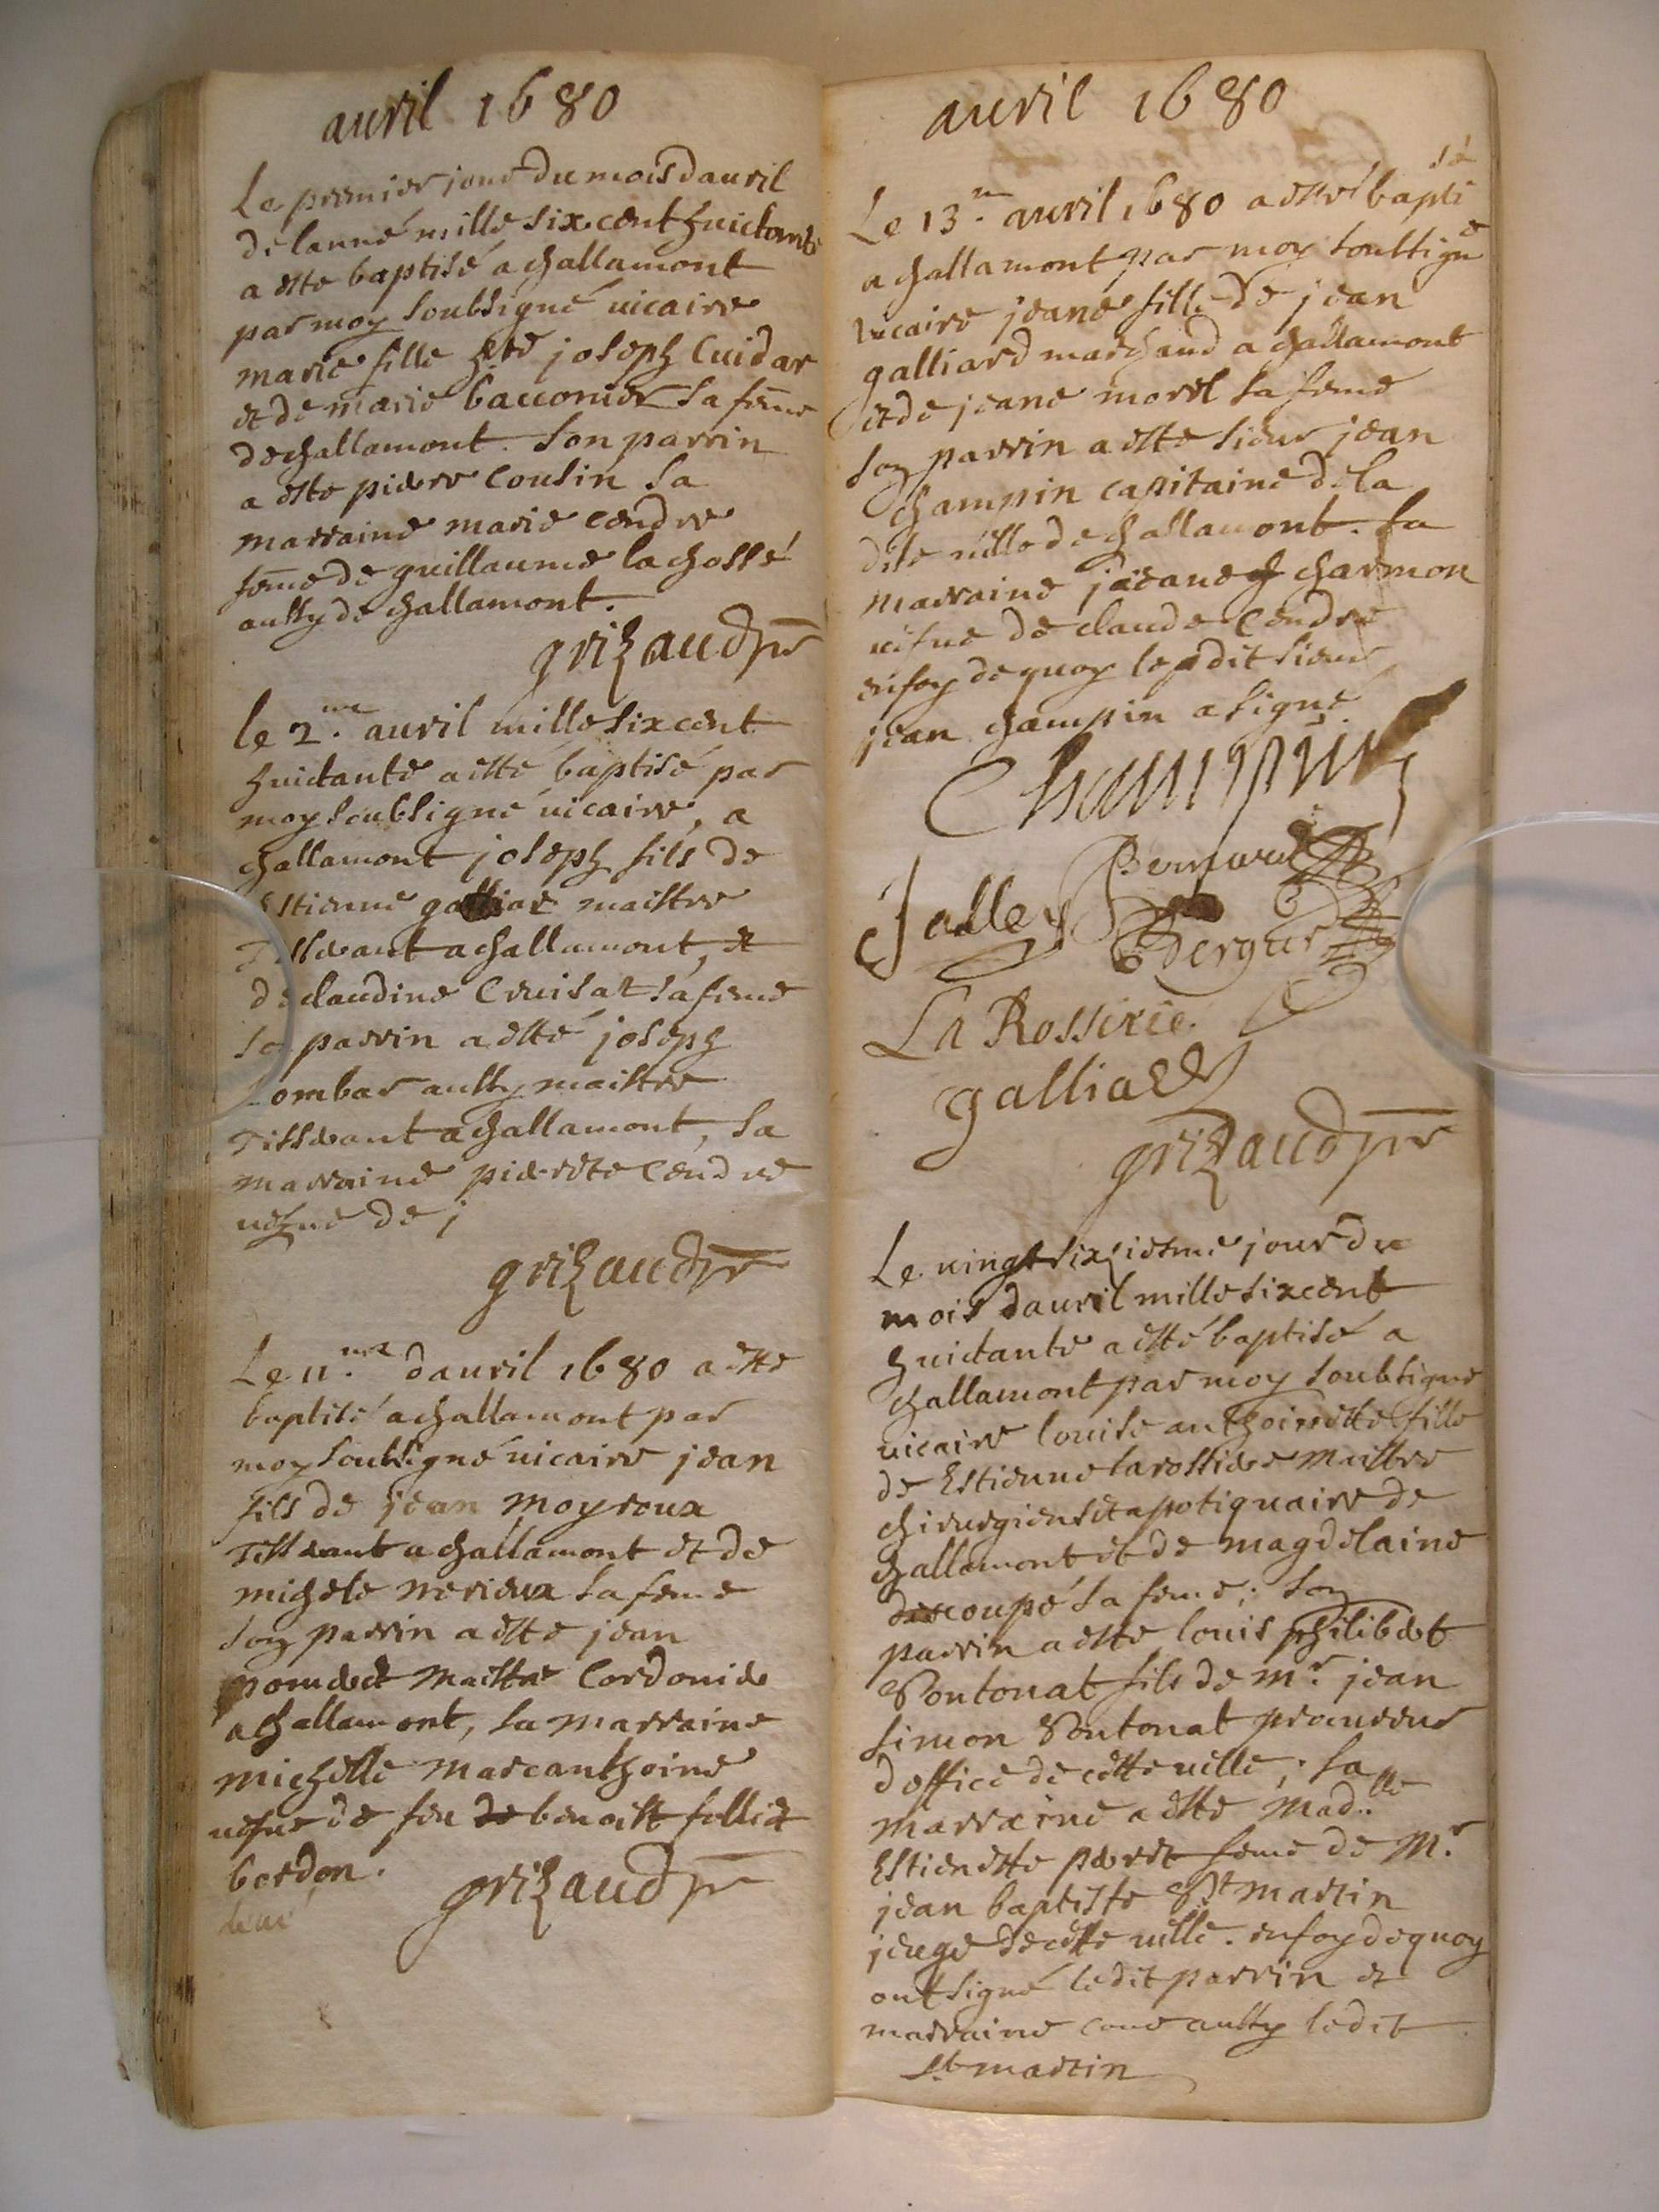 auril 1680
Le premier jour du mois dauril
de lanné mille six cent huictante
a este baptisé a challamont
par moy soubsigné uicaire
marie fille de joseph Cuidar
et de marie bacconier sa feme
de challamont. son parrin
a este pierre Cousin sa
marraine marie Cendre
feme de guillaume la chossé
aussy de challamont.
grizaud pr
le 2.me auril mille six cent
huictante a esté baptisé par
moy soubsigné uicaire, a
challamont joseph fils de
Estienne galliar maistre
Tisserant a challamont, et
de claudine Cruisat sa feme
so parrin a esté joseph
Lombar aussy maistre
Tisserant a challamont, sa
marraine pierrete Cendre
uefue de j
grizaud pr
Le 11.me dauril 1680 a este
baptisé a challamont par
moy soubsigné uicaire jean
fils de jean moyroux
Tisserant a challamont et de
michele merieux sa feme
son parrin a este jean
pomeret maistre Cordonier
a challamont, sa marraine
michelle marcanthoine
uefue de feu de benoist folliet
bordon.
grizaud pr
Le 13.me auril 1680 a esté baptisé
a challamont par moy soubsigné
uicaire jeane fille de jean
galliard marchand a challamont
et de jeane morel sa feme
son parrin a este sieur jean
champin capitaine de la
dite uille de challamont. sa
marraine jeane charmon
uefue de claude Cendre
en foy de quoy le dit sieur
jean champin a signé
Champin
Jalley Bernard
Bergier
La Rossiere
galliard
grizaud pr
Le uingt sixiesme jour du
mois dauril mille six cent
huictante a esté baptisé a
challamont par moy soubsigné
uicaire louise anthoinette fille
de Estienne larossiere maistre
chirurgien et apotiquaire de
challamont et de magdelaine
descoupé sa feme; son
parrin a este louis philibert
Pontonat fils de mr. jean
simon Pontonat procureur
doffice de cette uille; sa
marraine a este Mad.lle
Estienette perret feme de Mr.
jean baptiste St martin
jeuge de cette uille. en foy de quoy
ont signé ledit parrin et
marraine come aussy ledit
St martin